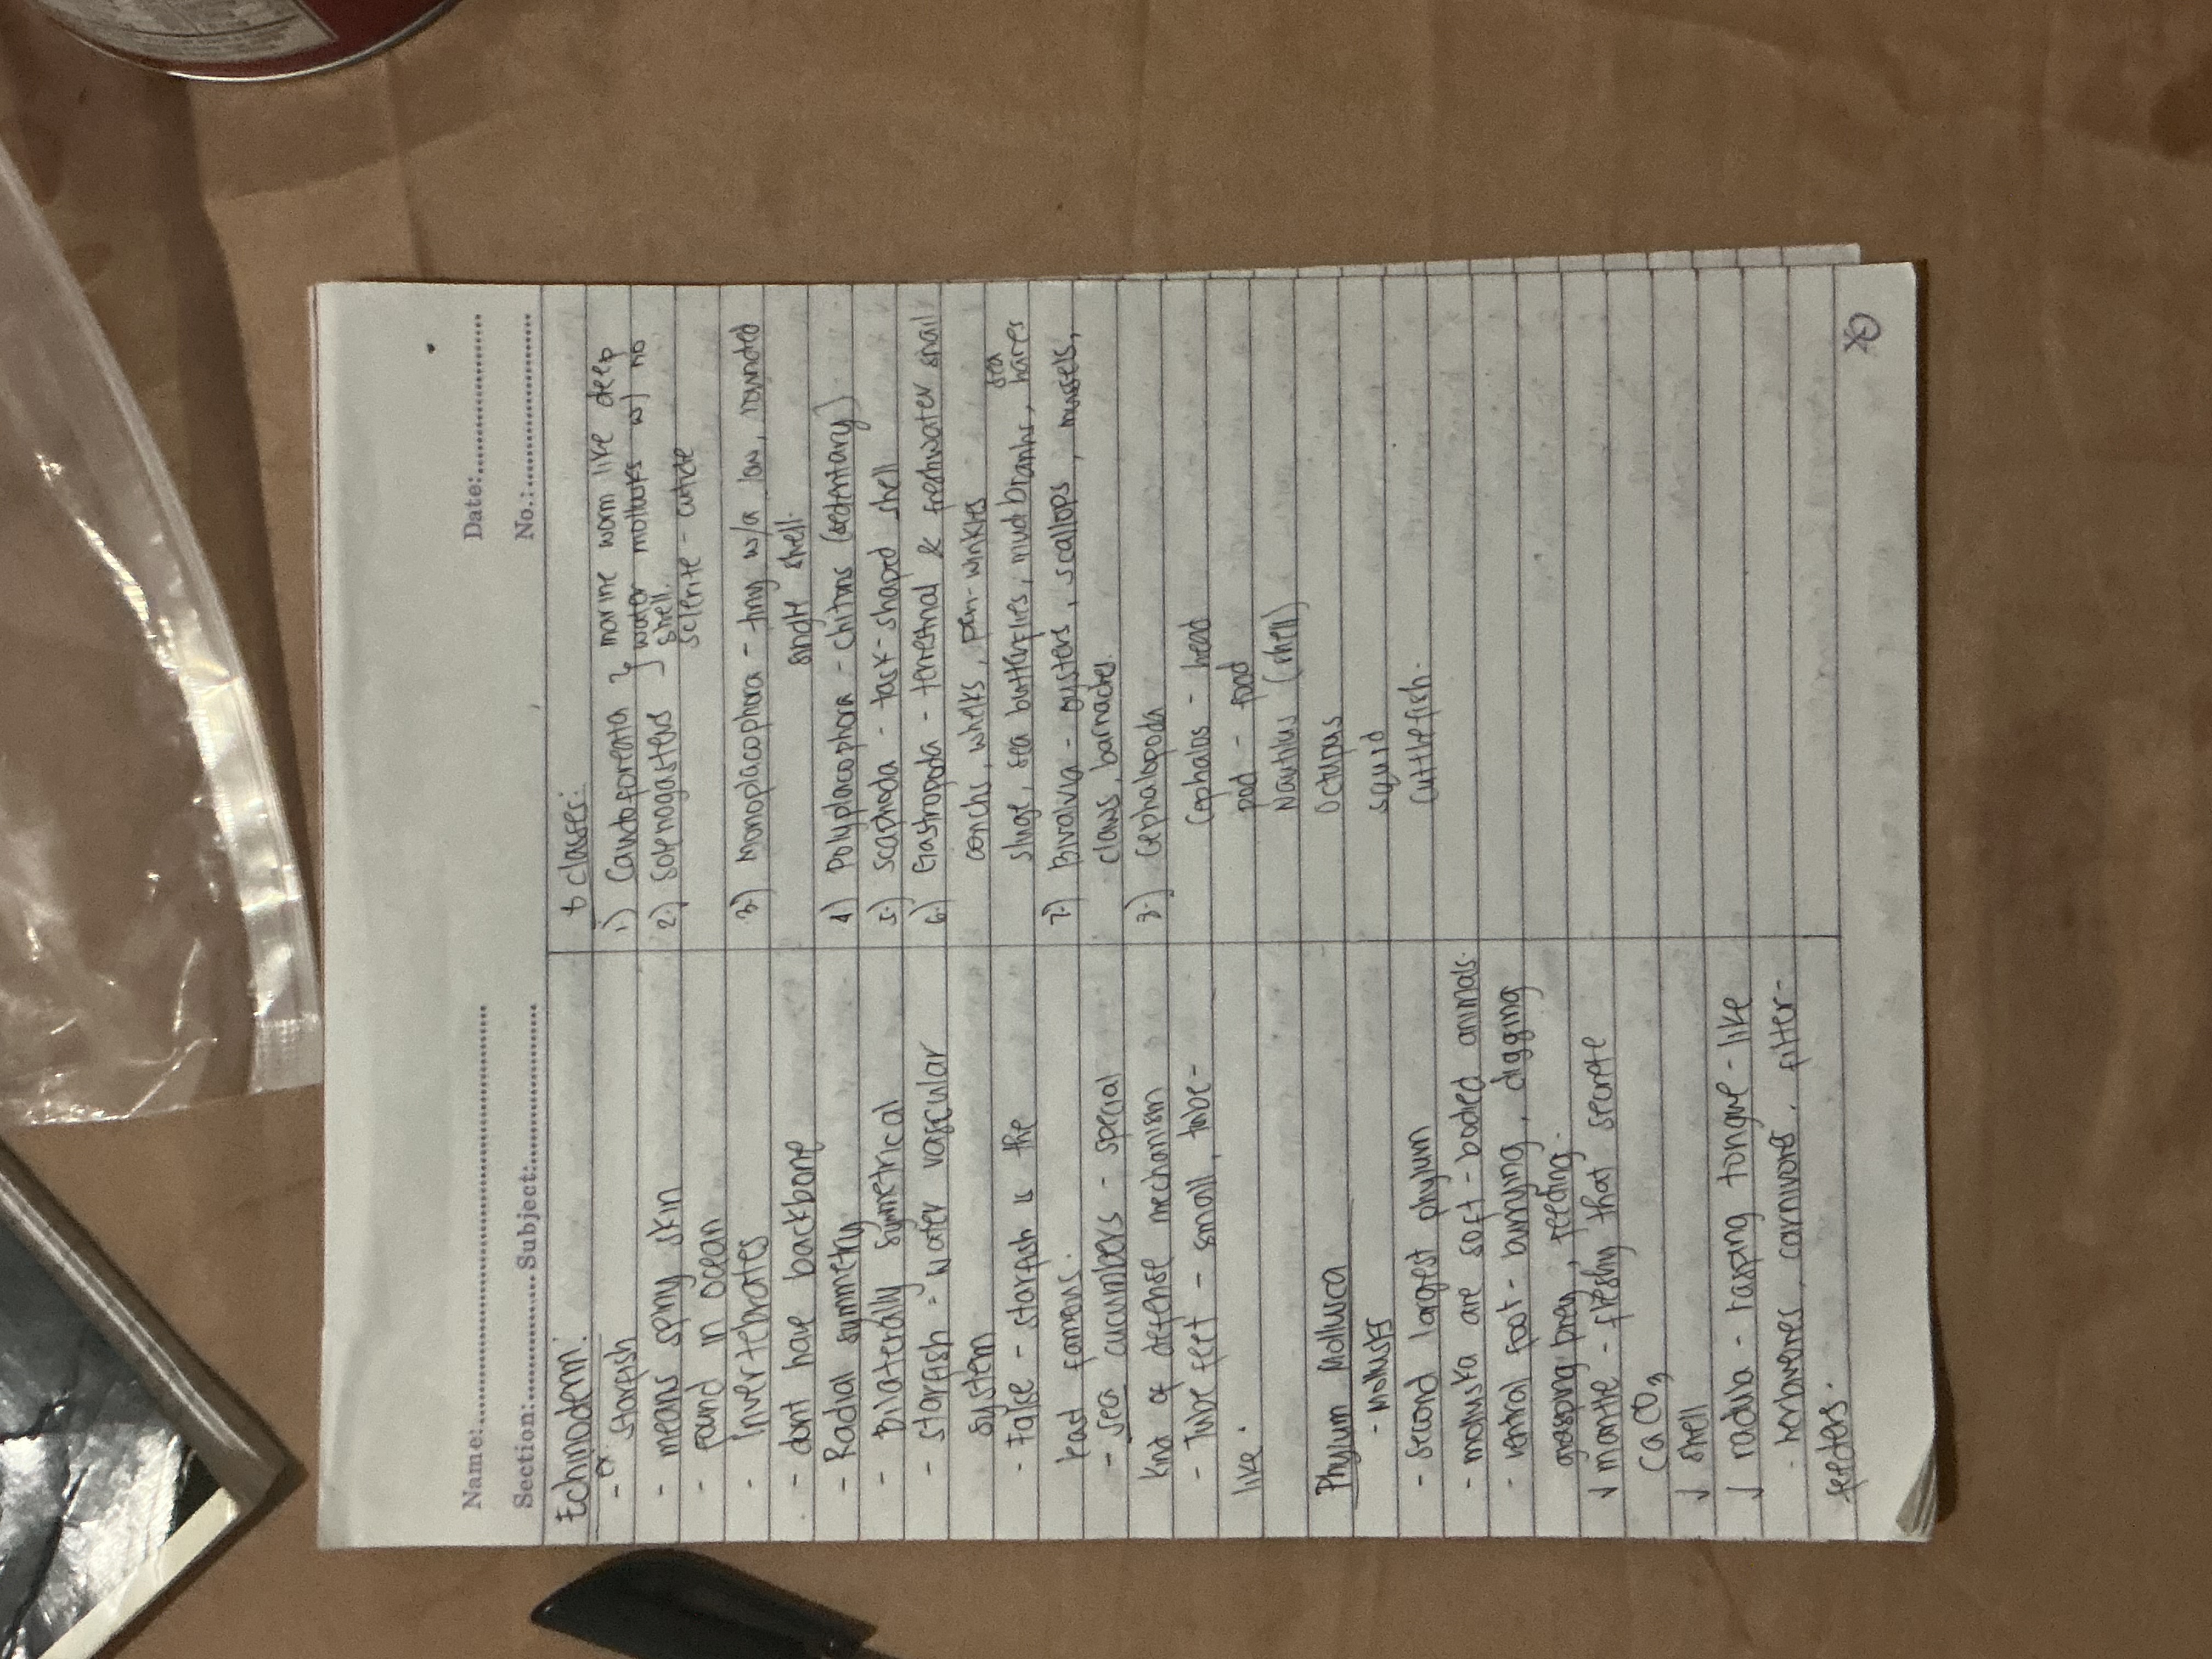 Name:
Date:
Section: Subject:
No.:
Echinoderm:
- ex:
starfish
- means spiny skin
- found in ocean
- Invertebrates
- dont have backbone
- Radial symmetry
- Bilaterally symmetrical
- starfish - water vascular
system
- False - starfish is the
least famous.
- sea cucumbers - special
kind of defense mechanism
- Tube feet - small, tube-
like.
Phylum Mollusca
- Mollusks
- second largest phylum
- molluska are soft-bodied animals.
- ventral foot - burrying, digging
grasping prey, feeding.
√ mantle - fleshy that secrete
CaCO3
√ shell
√ radula - rasping tongue-like
- herbivores, carnivores, filter-
feeders.
classes:
1.) Caudoforeata } marine worm like deep
2.) Solenogasters } water mollusks w/ no
shell.
sclerite - cuticle
3.) Monoplacophora - tiny w/a low, rounded
single shell.
4.) Polyplacophora - chitons (sedentary)
5.) Scaphoda - task-shaped shell
6.) Gastropoda - terrestrial & freshwater snail
conchs, whelks, peri-winkles
slugs, sea butterflies, nudibranhs, sea hares
7.) Bivalvia - oysters, scallops, mussels,
clams, barnacles.
8.) Cephalopoda
Cephalos - head
pod - food
Nautilus (shell)
Octupus
squid
Cuttlefish.